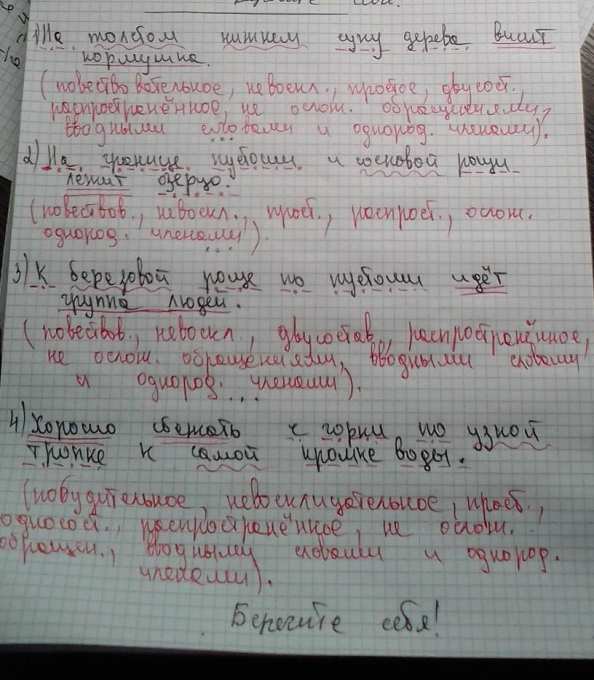 1) На толстом нижнем суку дерева висит
кормушка.
(повествовательное, невоскл., простое, двусост.,
распространённое, не ослож. обращениями,
вводными словами и однород. членами).
2) На границе пустоши и сосновой рощи
лежит озерцо.
(повествов., невоскл., прост., распрост., ослож.
однород. членами).
3) К березовой роще по пустоши идёт
группа людей.
(повествов., невоскл., двусостав, распространённое,
не ослож. обращениями, вводными словами
и однород. членами).
4) Хорошо сбежать с горки по узкой
тропке к самой кромке воды.
(побудительное, невосклицательное, прост.,
односост., распространённое, не ослож.
обращен., вводными словами и однород.
членами).
Берегите себя!